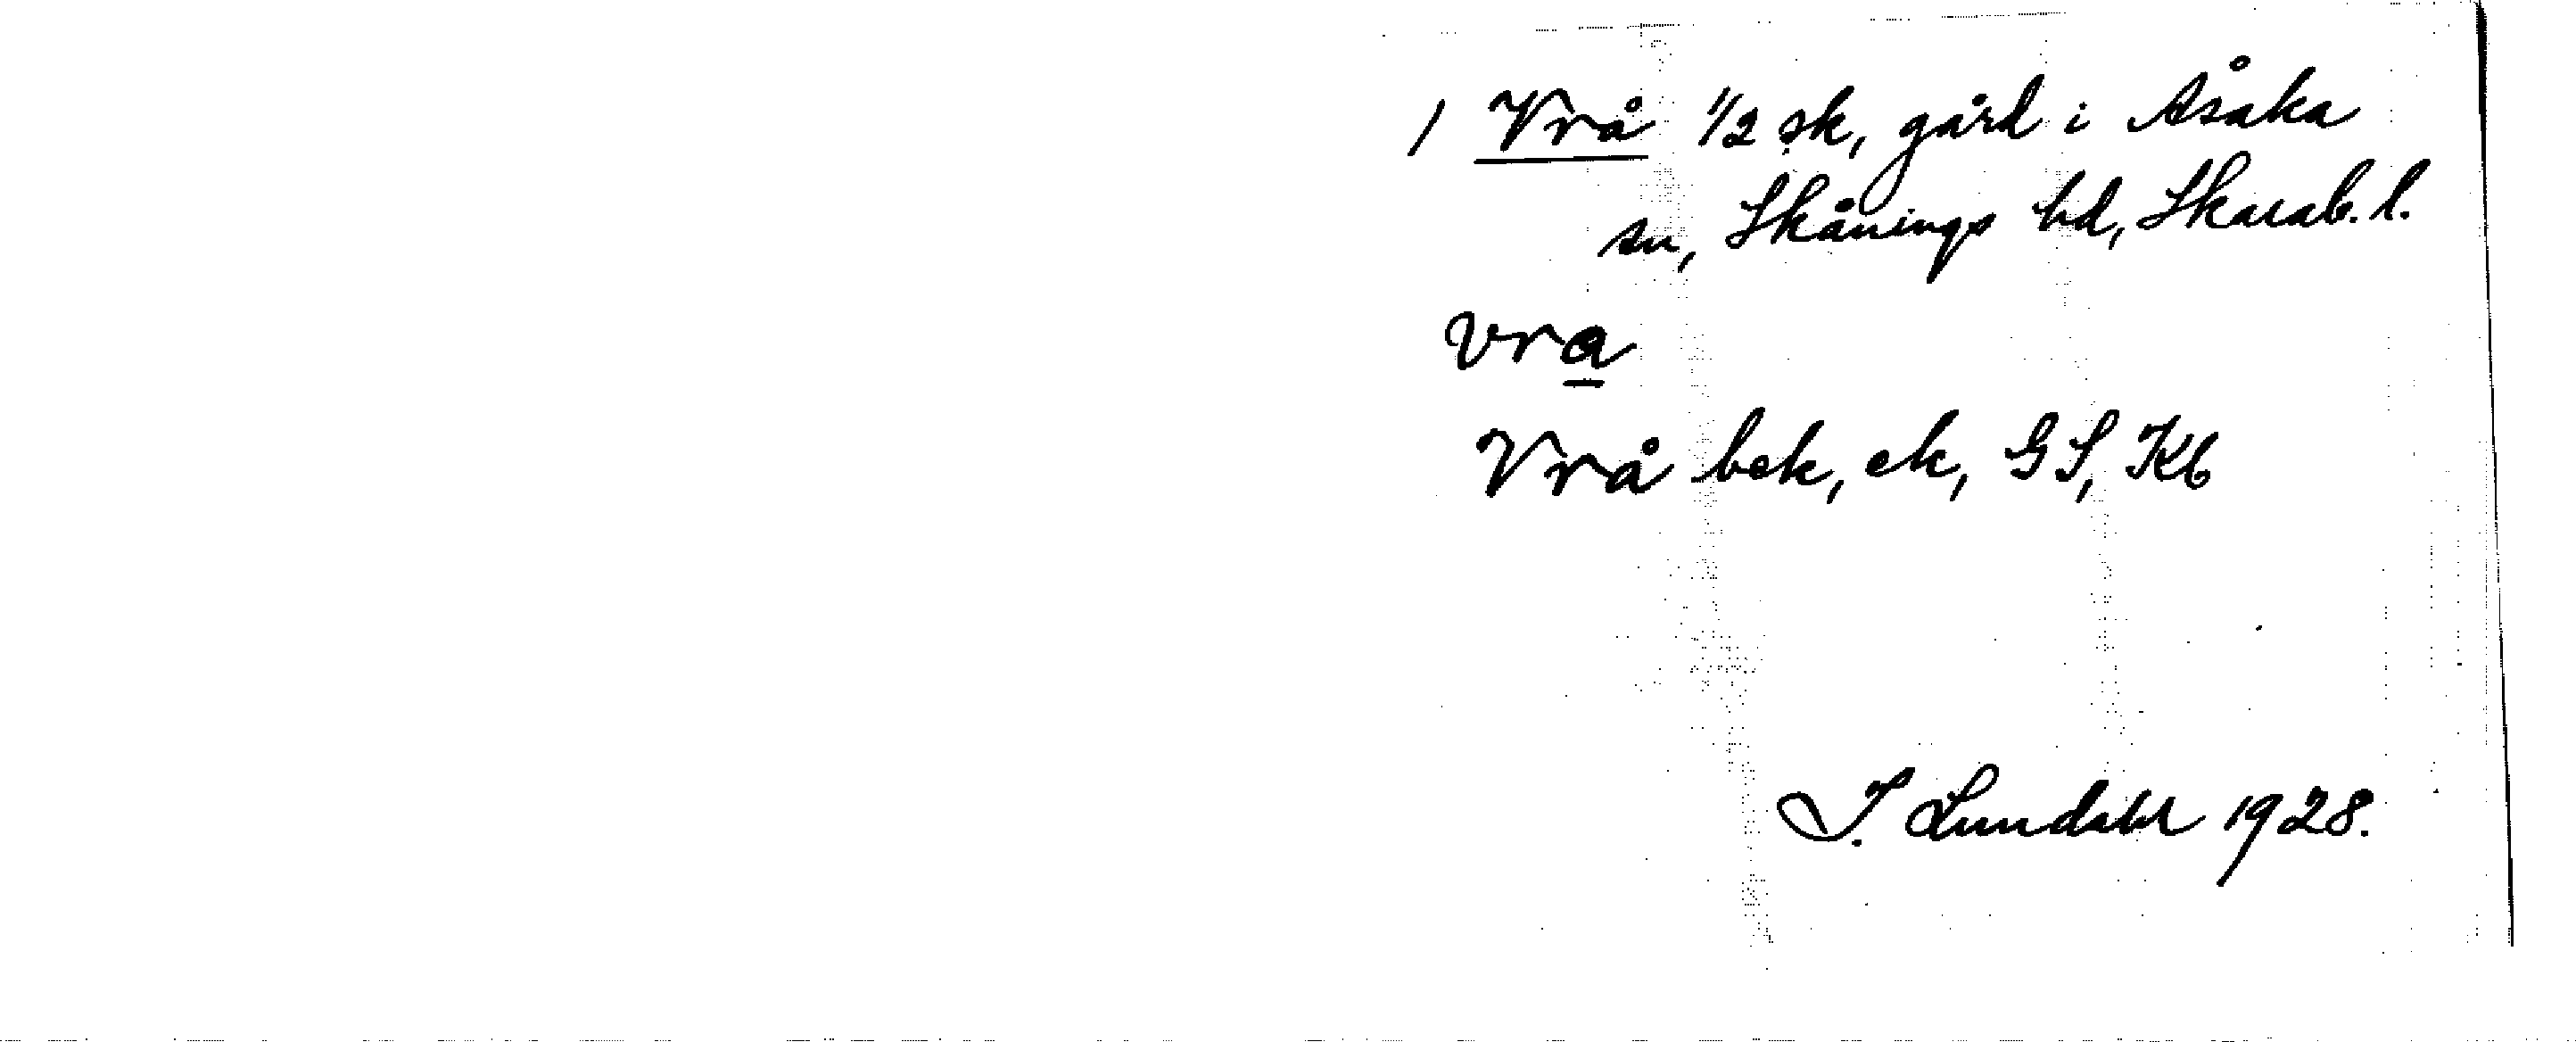 1 Vrå 1/2 sk, gård i Åsaka
sn, Skånings hd, Skarab. l.
vra
Vrå bek, ek, GS, Kb
I. Lundahl 1928.